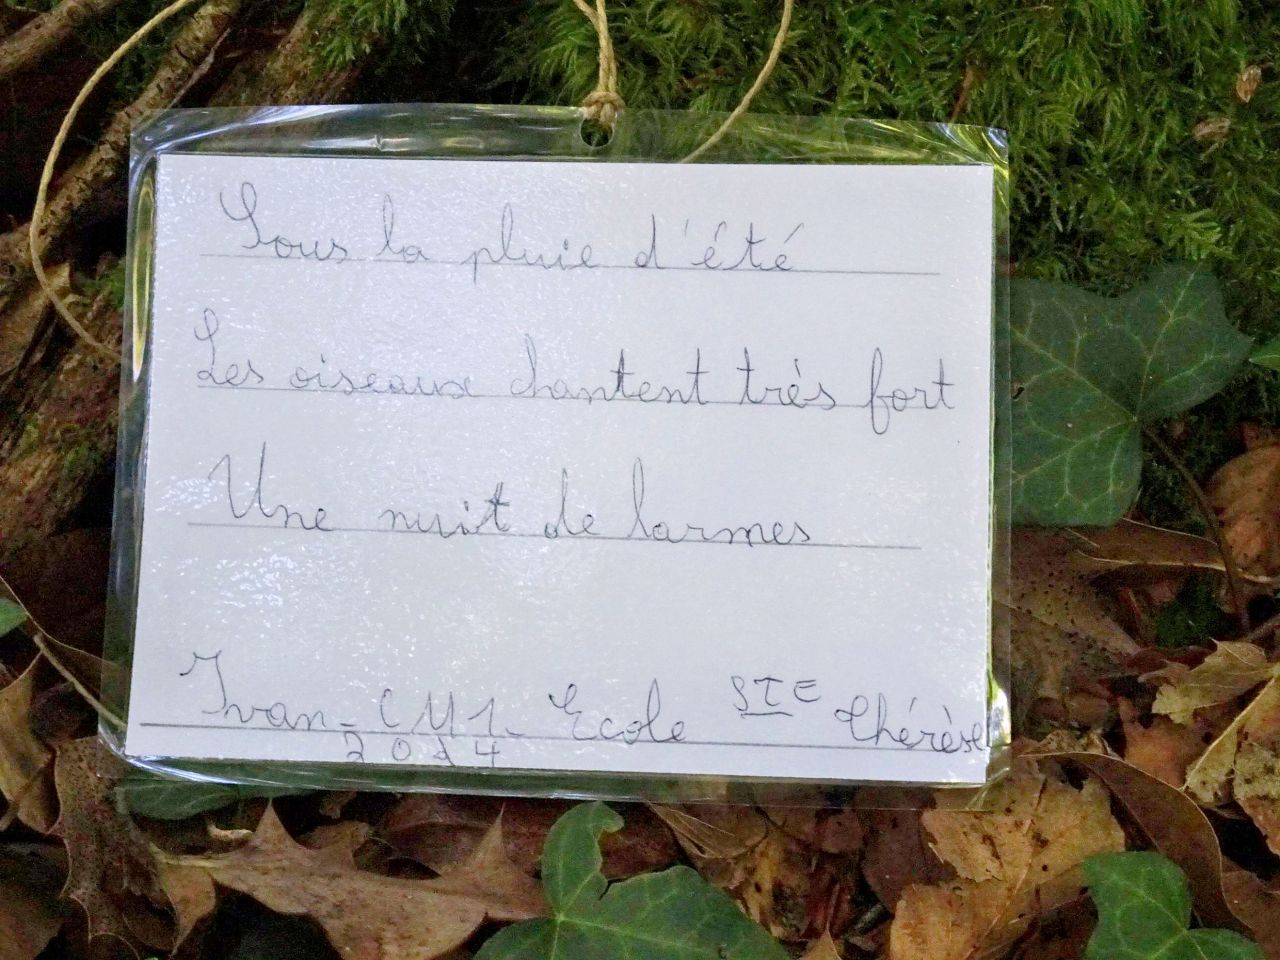 Sous la pluie d'été
Les oiseaux chantent très fort
Une nuit de larmes
Ivan - CM1 - Ecole STE Thérèse
2014